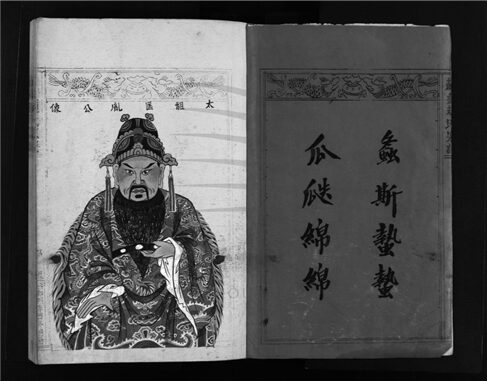 螽斯蟄蟄
瓜瓞綿綿
太祖匡胤公像